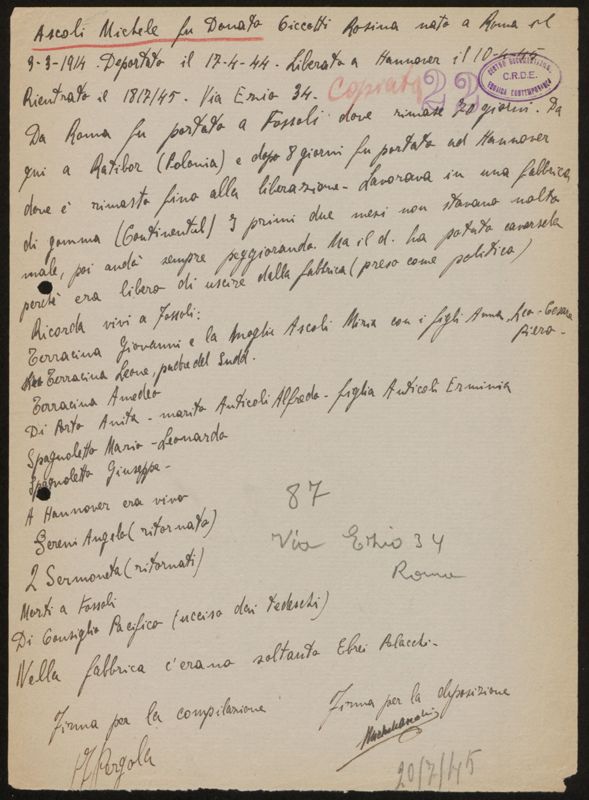 Ascoli Michele fu Donato Ciccotti Rosina nato a Roma il
9-3-1914. Deportato il 17-4-44. Liberato a Hannover il 10-4-45
CENTRO DOCUMENTAZIONE
C.R.D.E.
EBRAICA CONTEMPORANEA
Rientrato il 18/7/45. Via Ennio 34. Copiata 22
Da Roma fu portato a Fossoli dove rimase 20 giorni. Da
qui a Ratibor (Polonia) e dopo 8 giorni fu portato ad Hannover
dove è rimasto fino alla liberazione. Lavorava in una fabbrica
di gomma (Continental) I primi due mesi non stavano molto
male, poi andò sempre peggiorando. Ma il d. ha potuto cavarsela
perchè era libero di uscire dalla fabbrica (preso come politico)
Ricorda vivi a Fossoli:
Terracina Giovanni e la moglie Ascoli Miria con i figli Anna, Leo - Cesare
Piero -
Terracina Leone, padre del Sudd.
Terracina Amedeo
Di Porto Anita - marito Anticoli Alfredo - figlia Anticoli Erminia
Spagnoletto Mario - Leonardo
Spagnoletto Giuseppe -
A Hannover era vivo
Sereni Angelo (ritornato)
2 Sermoneta (ritornati)
Morti a Fossoli
Di Consiglio Pacifico (ucciso dai tedeschi)
Nella fabbrica c'erano soltanto Ebrei Polacchi -
87
Via Ennio 34
Roma
Firma per la compilazione
Firma per la deposizione
Pergola
20/7/45